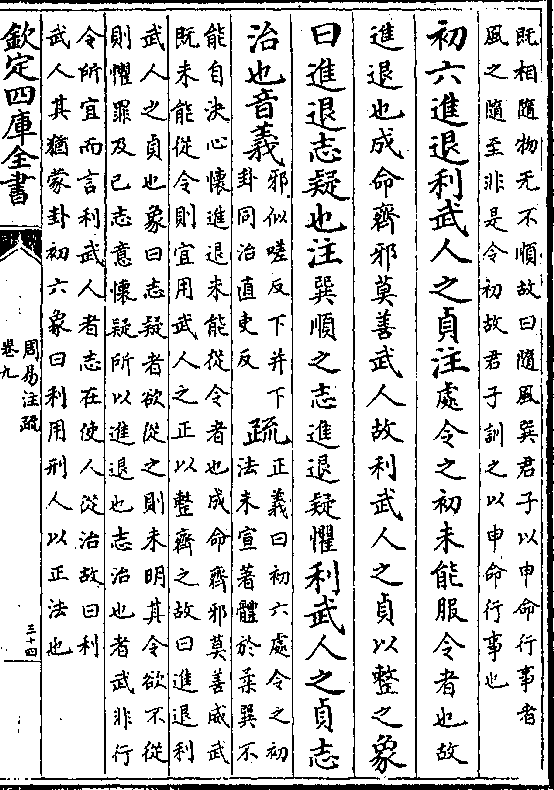 既相隨物无不順故曰隨風巽君子以申命行事者
風之隨至非是令初故君子訓之以申命行事也
初六進退利武人之貞注處令之初未能服令者也故
進退也成命齊邪莫善武人故利武人之貞以整之象
曰進退志疑也注巽順之志進退疑懼利武人之貞志
治也音義邪似嗟反下并下
卦同治直吏反
疏正義曰初六處令之初
法未宣著體於柔巽不
能自決心懷進退未能從令者也成命齊邪莫善威武
既未能從令則宜用武人之正以整齊之故曰進退利
武人之貞也象曰志疑者欲從之則未明其令欲不從
則懼罪及已志意懷疑所以進退也志治也者武非行
令所宜而言利武人者志在使人從治故曰利
武人其猶蒙卦初六象曰利用刑人以正法也
欽定四庫全書
周易注疏
卷九
三十四